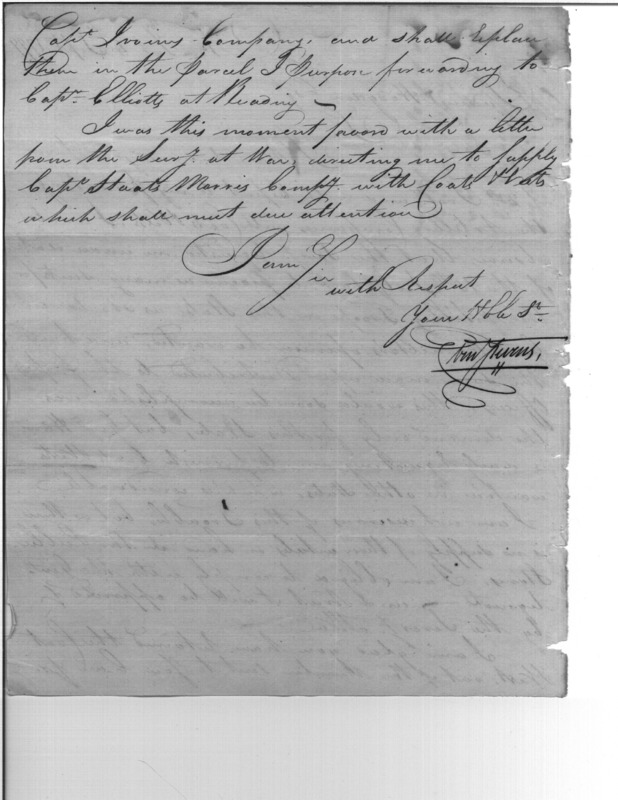 Capt. Irvins Company, and shall replace
them in the Parcel I Purpose forwarding to
Capt. Elliotts at Reading –
I was this moment favord with a letter
from the Secy. at War, directing me to Supply
Capt. Staats Morris Compy. with Coats & Hats
which shall meet due attention
I am Sir
with Respect
Your Hble St.
Stevens,